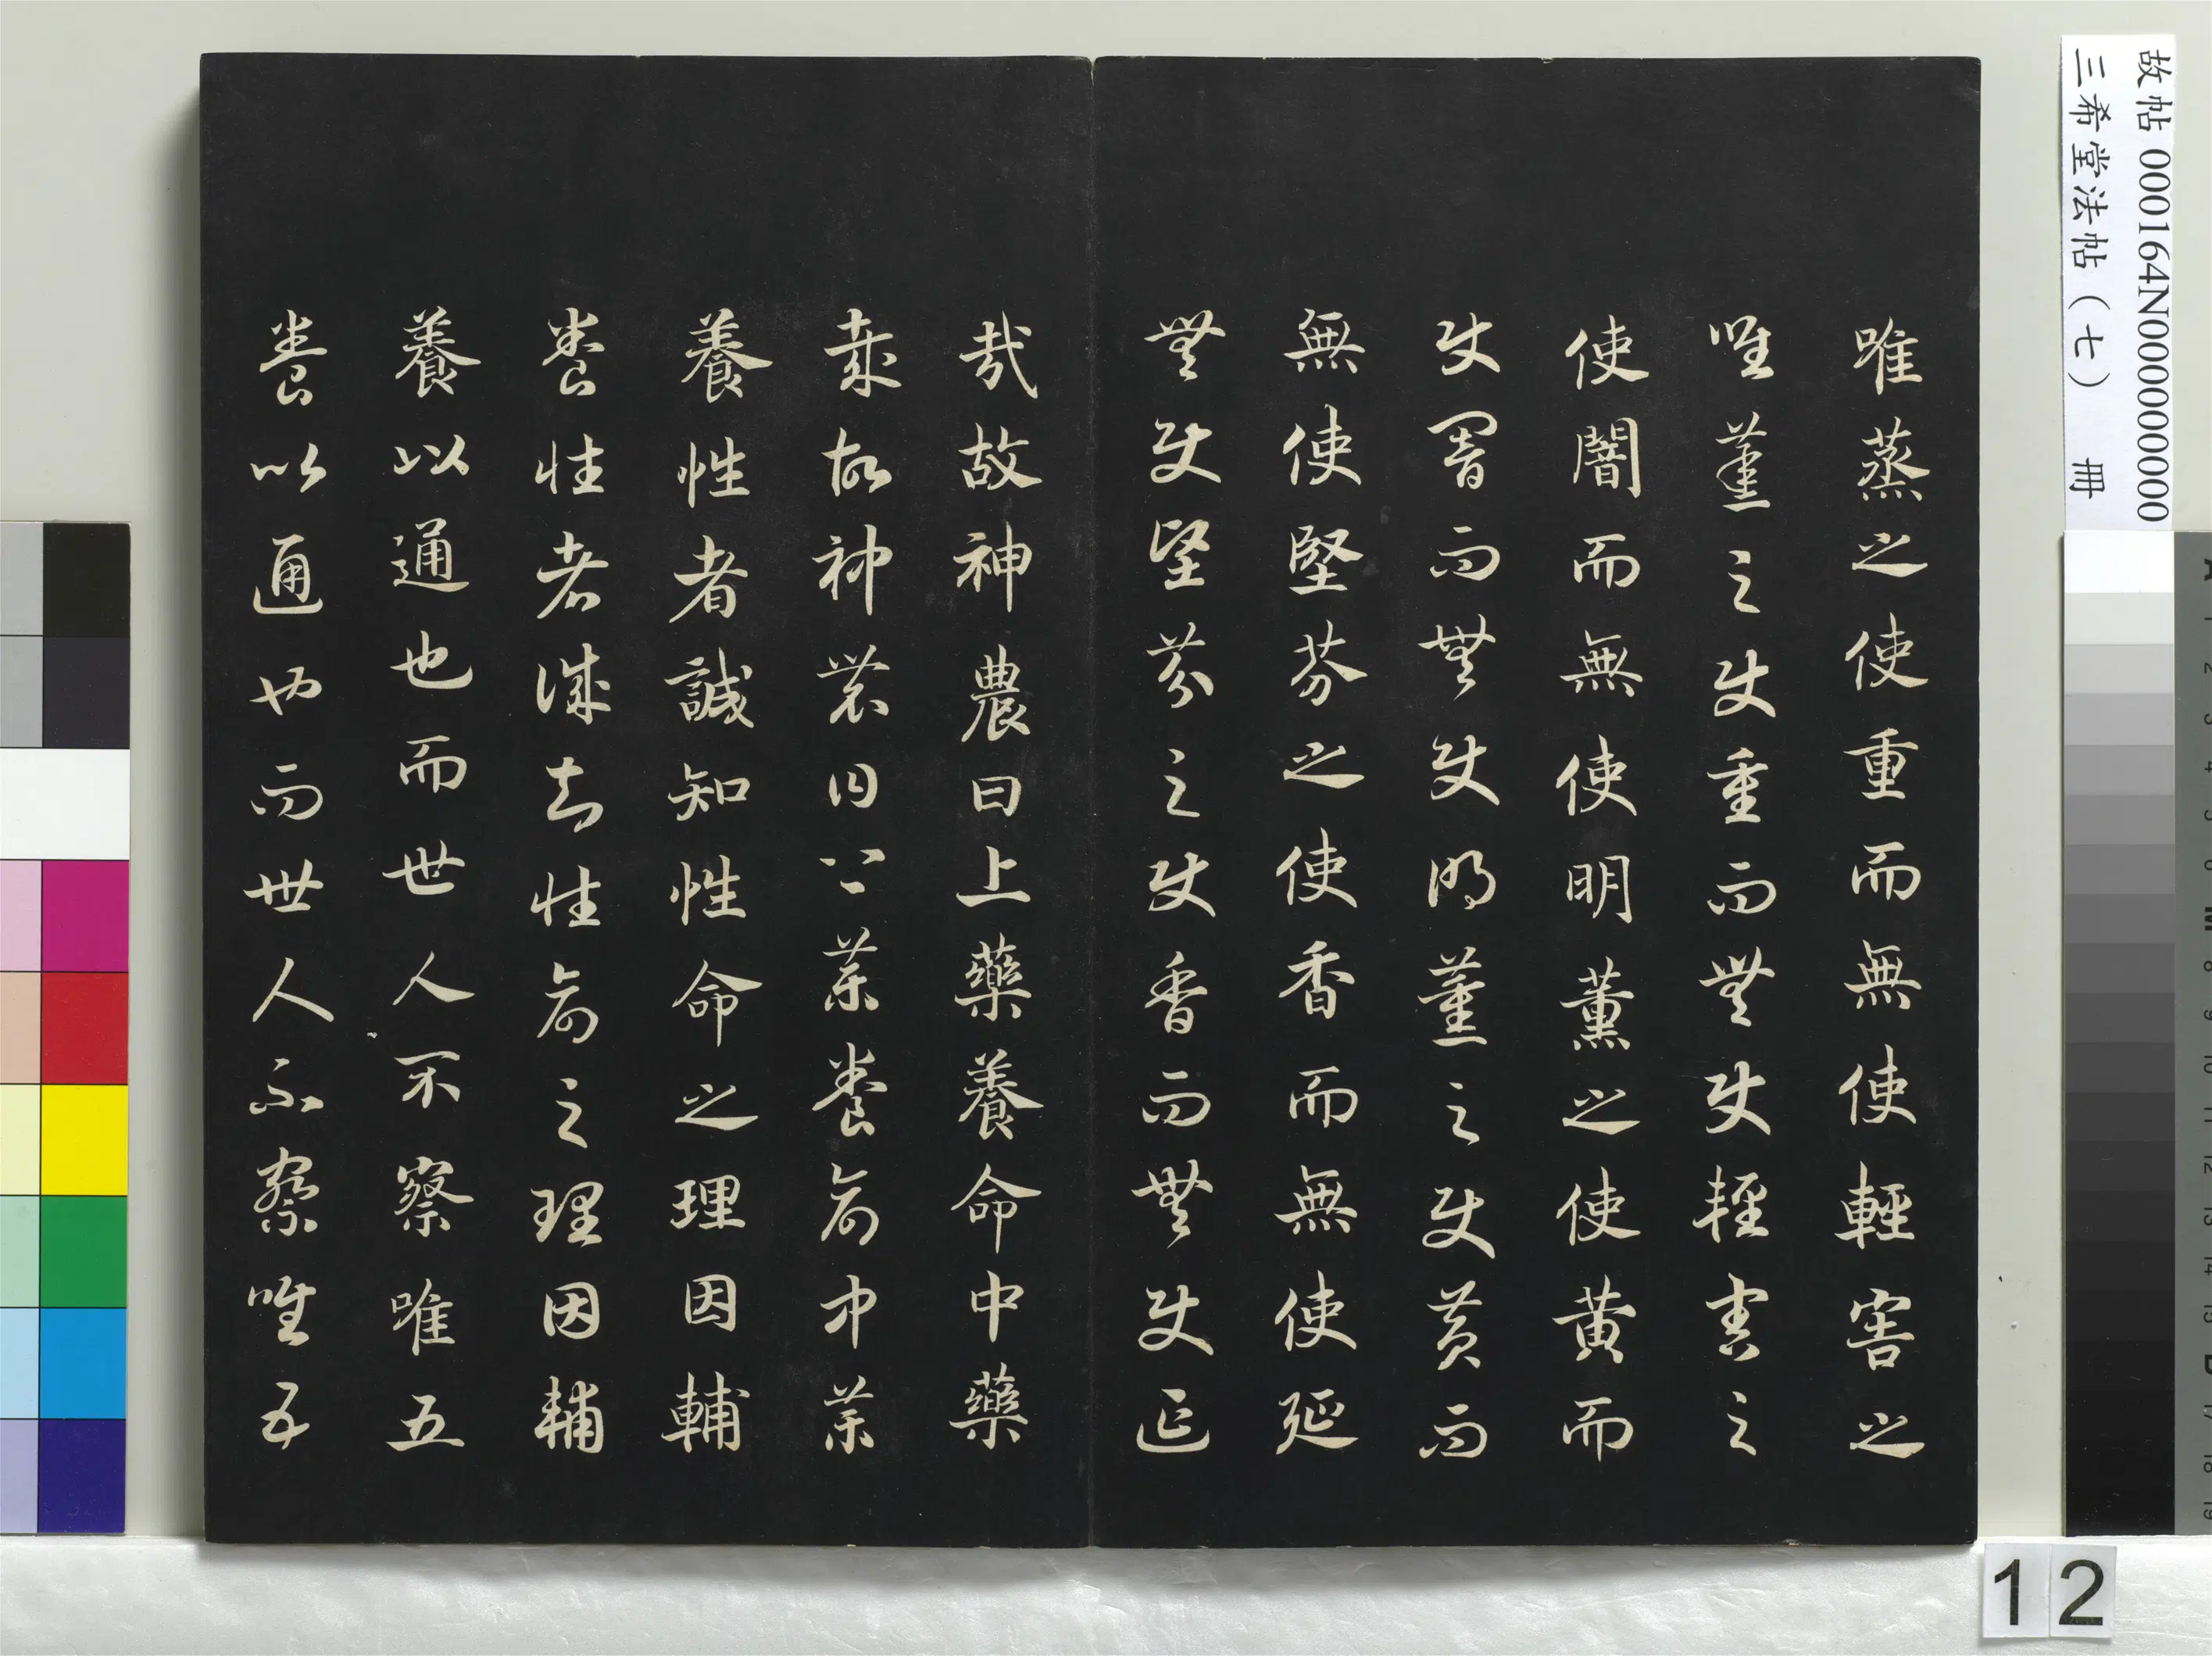 故帖 000164N000000000
三希堂法帖(七) 冊
唯蒸之使重而無使輕害之
唯蒸之使重而無使輕害之
使闇而無使明薰之使黃而
使闇而無使明薰之使黃而
無使堅芬之使香而無使延
無使堅芬之使香而無使延
哉故神農曰上藥養命中藥
哉故神農曰上藥養命中藥
養性者誠知性命之理因輔
養性者誠知性命之理因輔
養以通也而世人不察唯五
養以通也而世人不察唯五
12